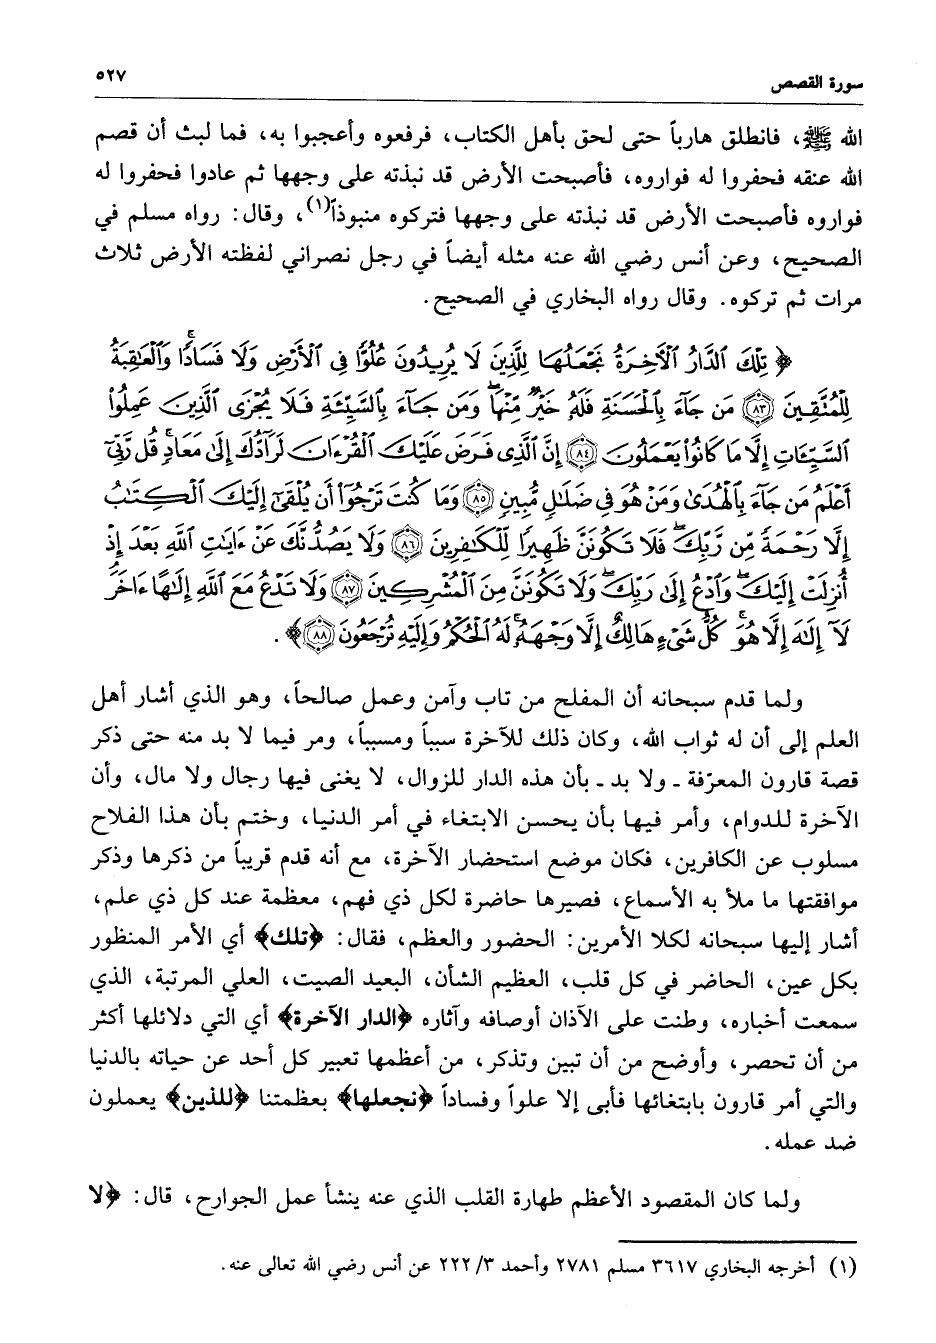 سورة القصص
٥٢٧
الله ﷺ، فانطلق هارباً حتى لحق بأهل الكتاب، فرفعوه وأعجبوا به، فما لبث أن قصم
الله عنقه فحفروا له فواروه، فأصبحت الأرض قد نبذته على وجهها ثم عادوا فحفروا له
فواروه فأصبحت الأرض قد نبذته على وجهها فتركوه منبوذاً(١)، وقال: رواه مسلم في
الصحيح، وعن أنس رضي الله عنه مثله أيضاً في رجل نصراني لفظته الأرض ثلاث
مرات ثم تركوه. وقال رواه البخاري في الصحيح.
﴿ تِلْكَ الدَّارُ الْآخِرَةُ نَجْعَلُهَا لِلَّذِينَ لَا يُرِيدُونَ عُلُوًّا فِي الْأَرْضِ وَلَا فَسَادًا وَالْعَاقِبَةُ
لِلْمُتَّقِينَ ﴿٨٣﴾ مَن جَاءَ بِالْحَسَنَةِ فَلَهُ خَيْرٌ مِّنْهَا وَمَن جَاءَ بِالسَّيِّئَةِ فَلَا يُجْزَى الَّذِينَ عَمِلُوا
السَّيِّئَاتِ إِلَّا مَا كَانُوا يَعْمَلُونَ ﴿٨٤﴾ إِنَّ الَّذِي فَرَضَ عَلَيْكَ الْقُرْءَانَ لَرَادُّكَ إِلَى مَعَادٍ قُل رَّبِّي
أَعْلَمُ مَن جَاءَ بِالْهُدَى وَمَنْ هُوَ فِي ضَلَالٍ مُّبِينٍ ﴿٨٥﴾ وَمَا كُنتَ تَرْجُوا أَن يُلْقَى إِلَيْكَ الْكِتَابُ
إِلَّا رَحْمَةً مِّن رَّبِّكَ فَلَا تَكُونَنَّ ظَهِيرًا لِّلْكَافِرِينَ ﴿٨٦﴾ وَلَا يَصُدُّنَّكَ عَنْ ءَايَاتِ اللَّهِ بَعْدَ إِذْ
أُنزِلَتْ إِلَيْكَ وَادْعُ إِلَى رَبِّكَ وَلَا تَكُونَنَّ مِنَ الْمُشْرِكِينَ ﴿٨٧﴾ وَلَا تَدْعُ مَعَ اللَّهِ إِلَٰهًا ءَاخَرَ
لَا إِلَٰهَ إِلَّا هُوَ كُلُّ شَيْءٍ هَالِكٌ إِلَّا وَجْهَهُ لَهُ الْحُكْمُ وَإِلَيْهِ تُرْجَعُونَ ﴿٨٨﴾ ﴾.
ولما قدم سبحانه أن المفلح من تاب وآمن وعمل صالحاً، وهو الذي أشار أهل
العلم إلى أن له ثواب الله، وكان ذلك للآخرة سبباً ومسبباً، ومر فيما لا بد منه حتى ذكر
قصة قارون المعرّفة ـ ولا بد ـ بأن هذه الدار للزوال، لا يغنى فيها رجال ولا مال، وأن
الآخرة للدوام، وأمر فيها بأن يحسن الابتغاء في أمر الدنيا، وختم بأن هذا الفلاح
مسلوب عن الكافرين، فكان موضع استحضار الآخرة، مع أنه قدم قريباً من ذكرها وذكر
موافقتها ما ملأ به الأسماع، فصيرها حاضرة لكل ذي فهم، معظمة عند كل ذي علم،
أشار إليها سبحانه لكلا الأمرين: الحضور والعظم، فقال: ﴿تلك﴾ أي الأمر المنظور
بكل عين، الحاضر في كل قلب، العظيم الشأن، البعيد الصيت، العلي المرتبة، الذي
سمعت أخباره، وطنت على الآذان أوصافه وآثاره ﴿الدار الآخرة﴾ أي التي دلائلها أكثر
من أن تحصر، وأوضح من أن تبين وتذكر، من أعظمها تعبير كل أحد عن حياته بالدنيا
والتي أمر قارون بابتغائها فأبى إلا علواً وفساداً ﴿نجعلها﴾ بعظمتنا ﴿للذين﴾ يعملون
ضد عمله.
ولما كان المقصود الأعظم طهارة القلب الذي عنه ينشأ عمل الجوارح، قال: ﴿لا
(١) أخرجه البخاري ٣٦١٧ مسلم ٢٧٨١ وأحمد ٢٢٢/٣ عن أنس رضي الله تعالى عنه.